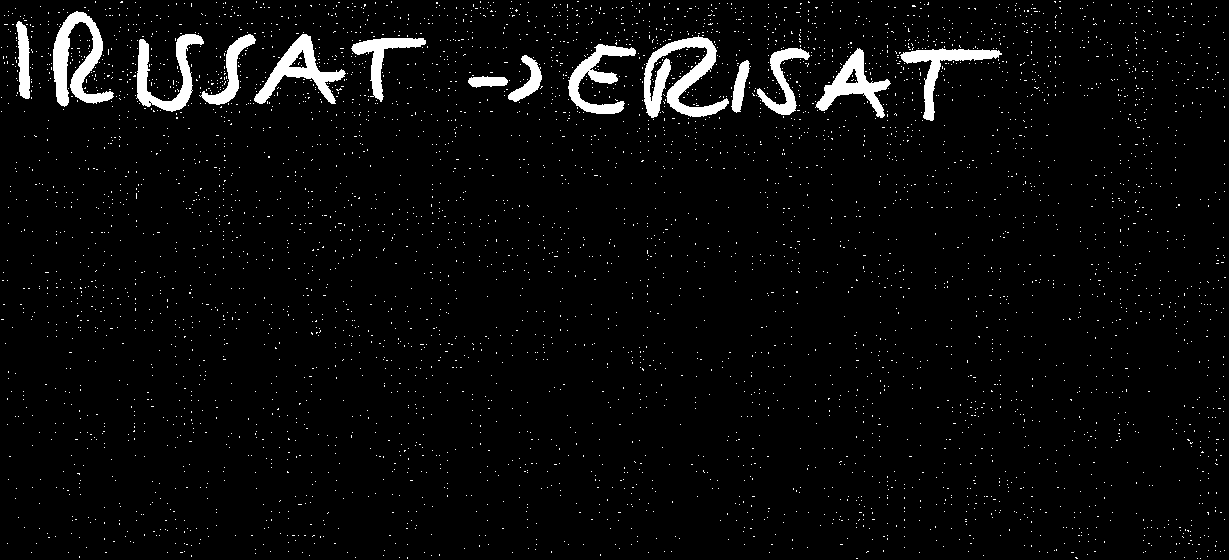 IRUSSAT → ERISAT